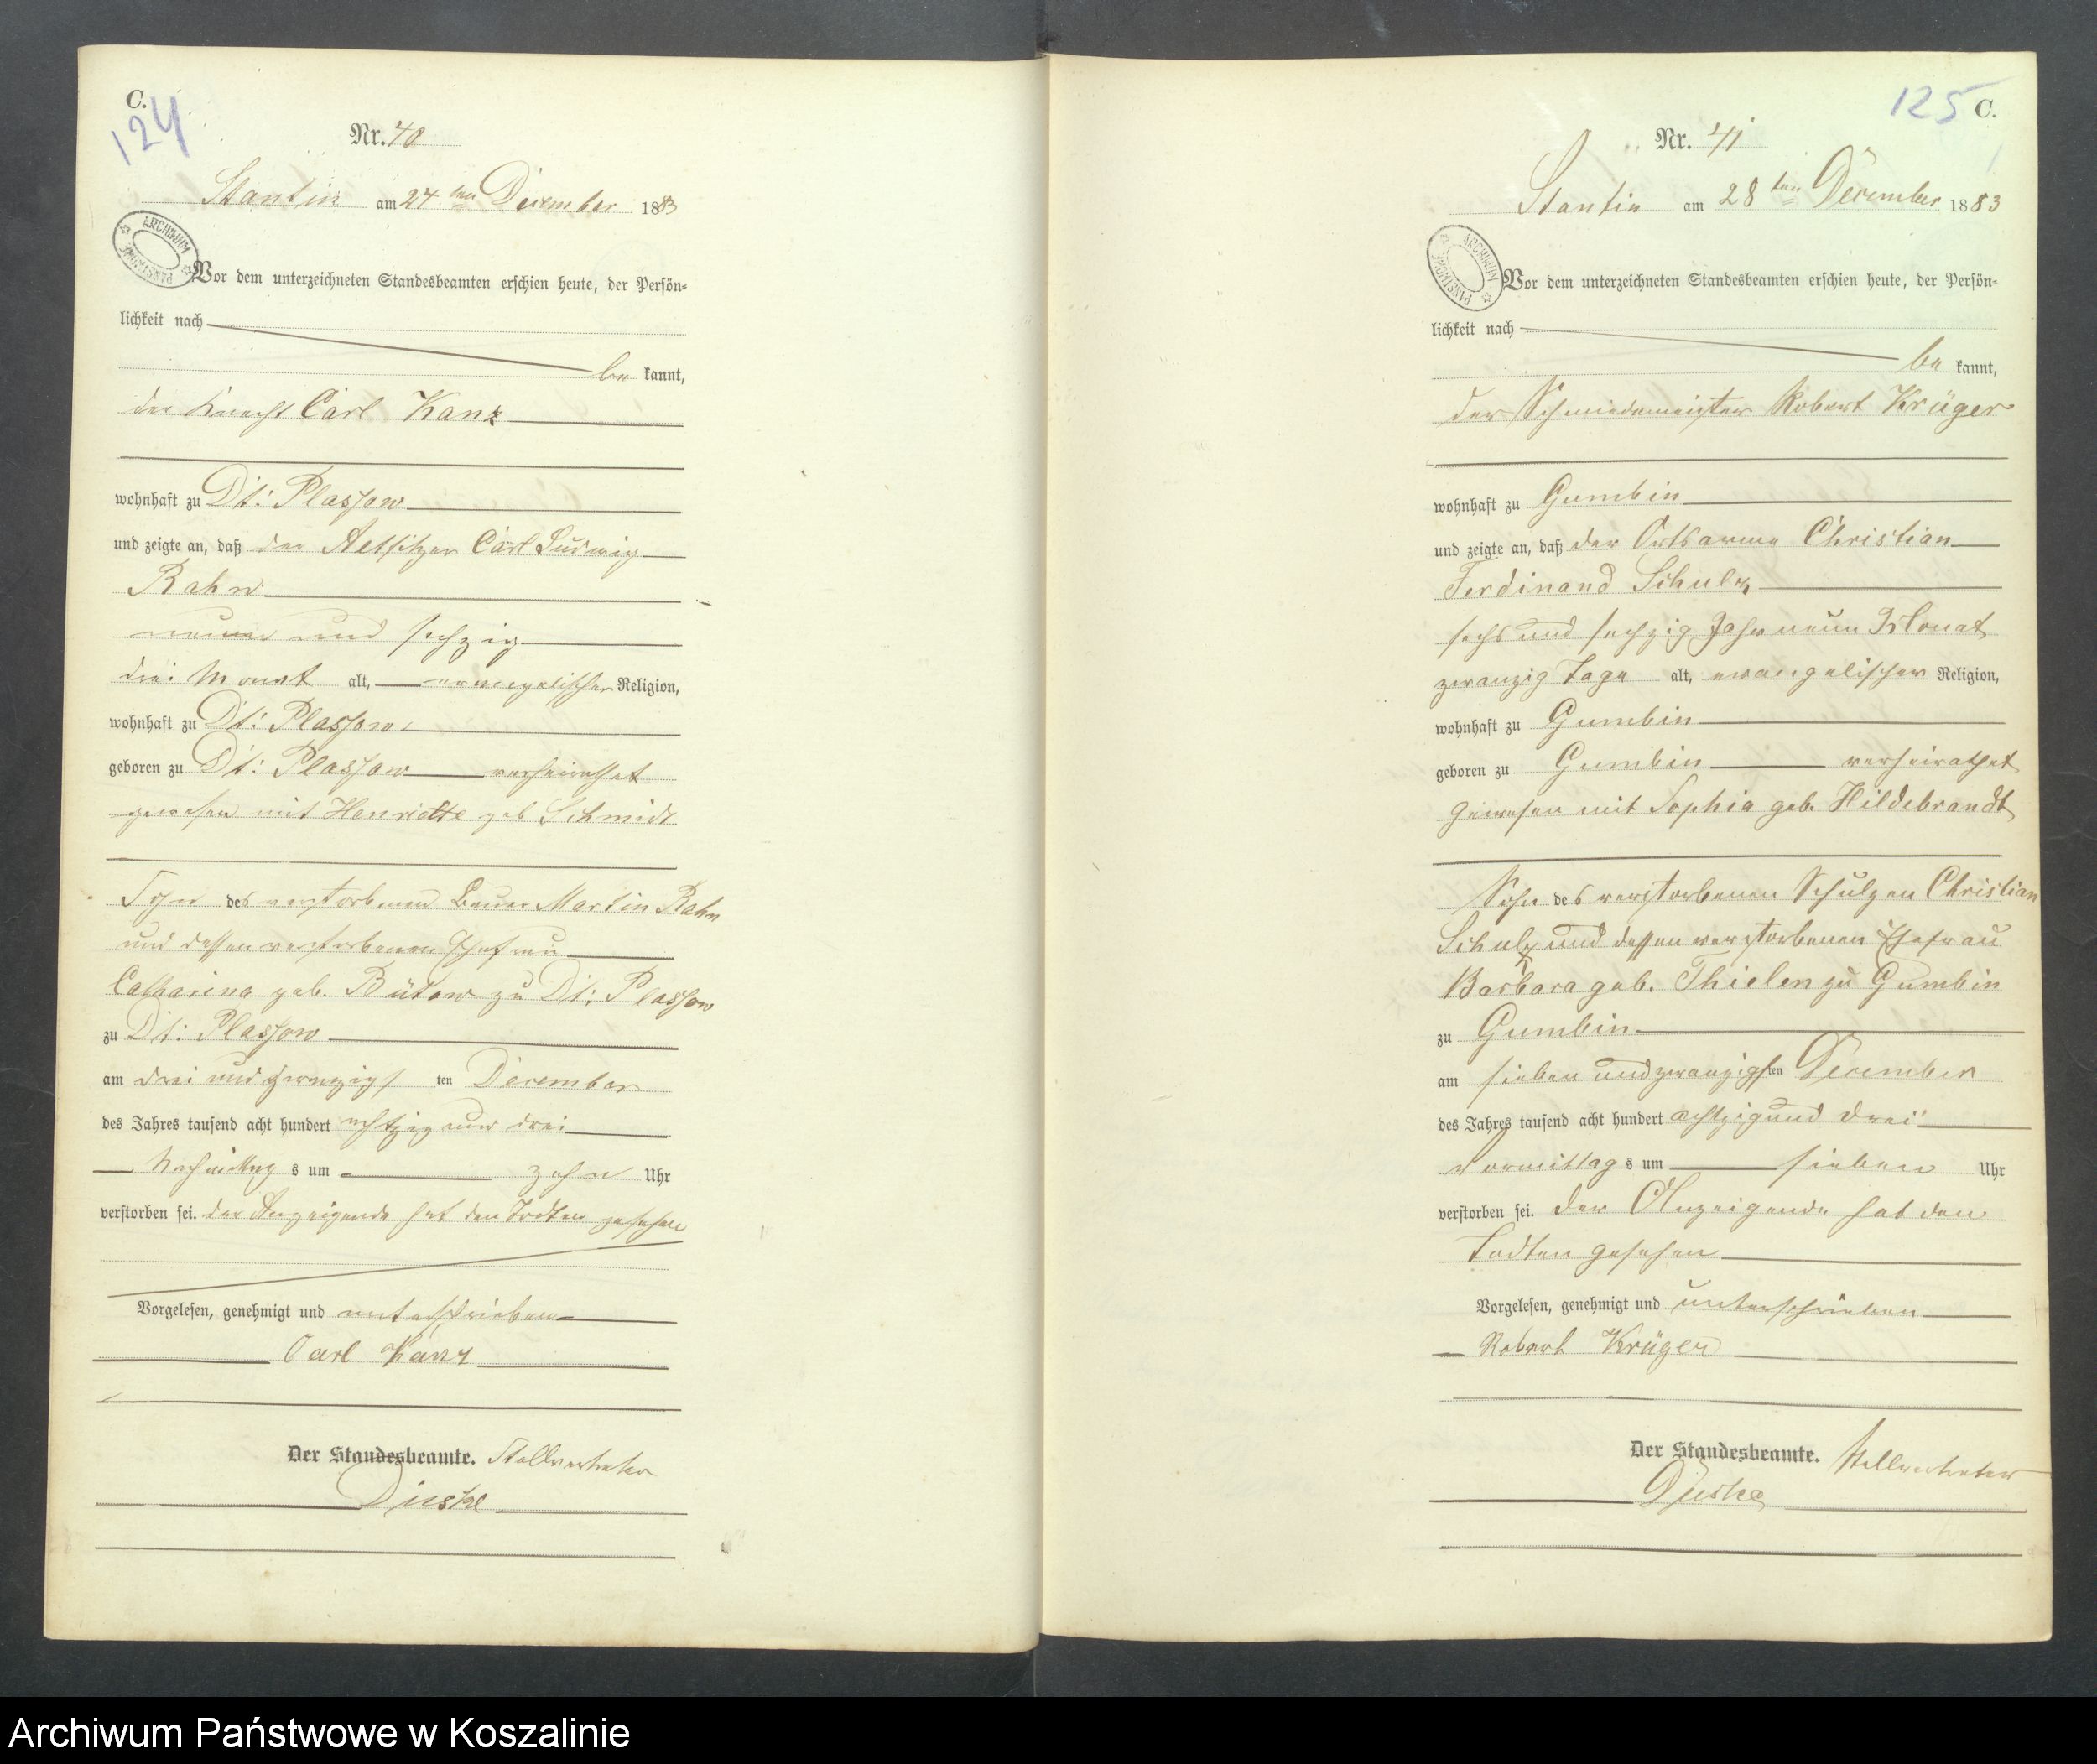 C.
124
Nr. 40
Stantin am 24 ten December 1883
ARCHIWUM PAŃSTWOWE
Vor dem unterzeichneten Standesbeamten erschien heute, der Persön-
lichkeit nach
be kannt,
der Knecht Carl Kanz
wohnhaft zu Dt: Plassow
und zeigte an, daß der Altsitzer Carl Ludwig
Rahn
neun und sechzig
drei Monat alt, evangelischer Religion,
wohnhaft zu Dt: Plassow
geboren zu Dt: Plassow verheirathet
gewesen mit Henriette geb Schmidt
Sohn des verstorbenen Bauer Martin Rahn
und dessen verstorbenen Ehefrau
Catharina geb. Bütow zu Dt: Plassow
zu Dt: Plassow
am drei und zwanzigs ten December
des Jahres tausend acht hundert achtzig und drei
Nachmittag s um zehn Uhr
verstorben sei. der Anzeigende hat den Todten gesehen
Vorgelesen, genehmigt und unterschrieben
Carl Kanz
Der Standesbeamte. Stellvertreter
125
C.
Nr. 41
Stantin am 28 ten December 1883
ARCHIWUM PAŃSTWOWE
Vor dem unterzeichneten Standesbeamten erschien heute, der Persön-
lichkeit nach
be kannt,
der Schmiedemeister Robert Krüger
wohnhaft zu Gumbin
und zeigte an, daß der Ortsarme Christian
Ferdinand Schulz
sechs und sechzig Jahr neun Monat
zwanzig Tage alt, evangelischer Religion,
wohnhaft zu Gumbin
geboren zu Gumbin verheirathet
gewesen mit Sophia geb. Hildebrandt
Sohn des verstorbenen Schulzen Christian
Schulz und dessen verstorbenen Ehefrau
Barbara geb. Thielen zu Gumbin
zu Gumbin
am sieben und zwanzigsten December
des Jahres tausend acht hundert achtzig und drei
Vormittag s um sieben Uhr
verstorben sei. der Anzeigende hat den
Todten gesehen
Vorgelesen, genehmigt und unterschrieben
Robert Krüger
Der Standesbeamte. Stellvertreter
Archiwum Państwowe w Koszalinie